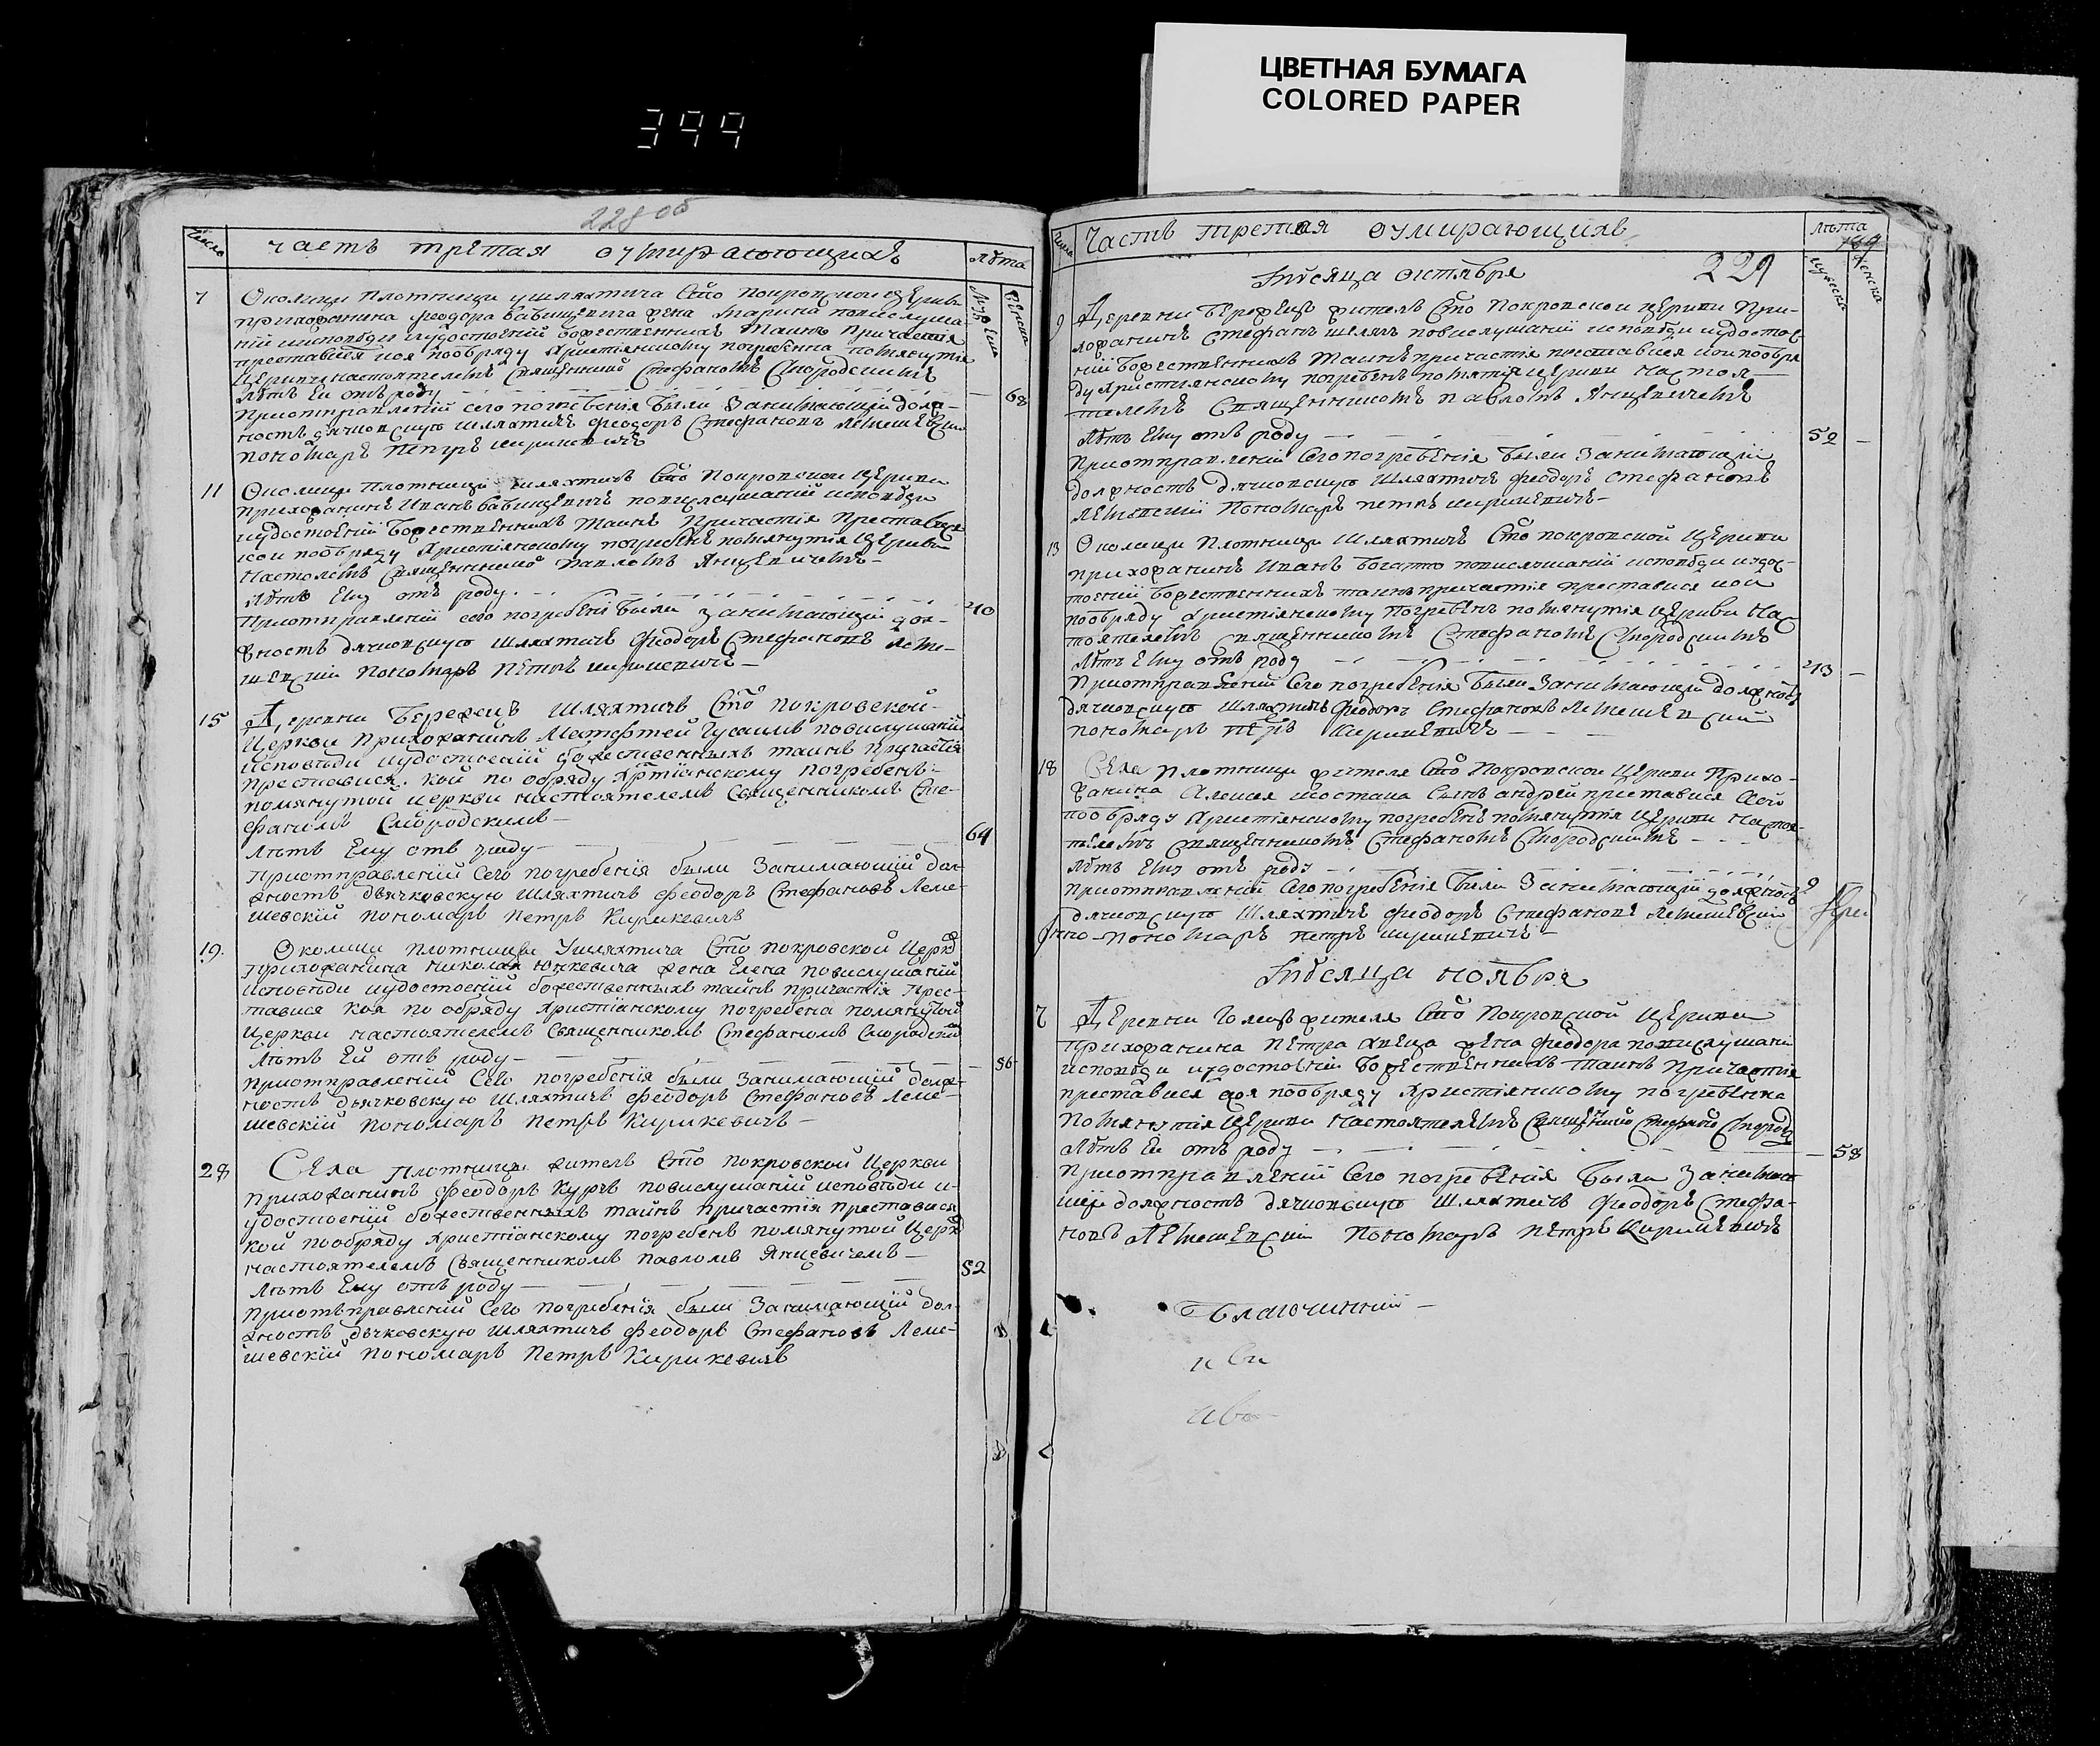 ЦВЕТНАЯ БУМАГА
COLORED PAPER
399
228 об
Число
часть третая оумирающихъ
Лѣта
Мужеска
Женска
7
Околици Плотници ушляхтича Сто Покровской церкви
прихожанина Феодора Бабицевича жена Марина повислуша
ній исповѣди иудостоеній божественнихъ Таинъ Причастія
преставися коя пообряду христіянскому погребенна помянутія
Церкви настоятелемъ священико Стефаномъ Смородскимъ
Лѣтъ Ей отъ роду
68
Приотправленій сего погребенія были занимающій долж-
ность дячковскую шляхтичъ Феодоръ Стефановъ Лемешевски
пономаръ Петръ кирикевичъ
11
Околици Плотници шляхтичъ Сто Покровской Церкви
Прихожанинъ Иванъ Бабицевичъ повислушаній исповѣди
иудостоеній Божественнихъ Таинъ Причастія Преставися
кои пообряду христіянскому погребенъ помянутія Церкви
Настоятелемъ священнико Павломъ Янцевичемъ-
Лѣтъ Ему отъ роду
40
Приотправленій сего погребені были занимающій дол-
жность дячковскую шляхтичъ Феодоръ Стефановъ Леме-
шевскій Пономаръ Петръ кирикевичъ-
15
Деревни Бережецъ Шляхтичъ Сто Покровской-
Церкви Прихожанинъ Матфтей повислушаній
исповѣди иудостоеній божественныхъ таинъ Причастія
преставися. кой по обряду христіанскому погребенъ-
помянутой церкви настоятелемъ Священникомъ Сте-
фаномъ Смородскимъ-
Лѣтъ Ему отъ роду-
64
Приотправленій Сего погребенія были Занимающій дол-
жность дьячковскую Шляхтичъ Феодоръ Стефановъ Леме-
шевскій пономаръ Петръ Кирикевичъ
19.
Околици плотници Ушляхтича Сто покровской Церкв
Прихожанина Николая Юнкевича жена Елена повислушаній
исповѣди иудостоеній божественныхъ таинъ причастія Прес-
тавися коя по обряду христіанскому погребена помянутой
Церкви настоятелемъ Священникомъ Стефаномъ Смородски
Лѣтъ Ей отъ роду-
56
приотправленій Сего погребенія были занимающій долж-
ность дьячковскую Шляхтичъ Феодоръ Стефановъ Леме-
шевскій пономаръ Петръ Кирикевичъ-
28
Села плотници житель Сто покровской Церкви
прихожанинъ Феодоръ Курчъ повислушаній исповѣди и-
удостоеній божественныхъ таинъ Причастія преставися
кой пообряду христіанскому погребенъ помянутой Церкв
настоятелемъ Священникомъ Павломъ Янцевичемъ-
52
Лѣтъ Ему отъ роду-
приотъправленій Сего погребенія были Занимающій дол-
жность дьчковскую шляхтичъ Феодоръ Стефановъ Леме-
шевскій пономаръ Петръ Кирикевичъ
Число
Часть третая оумирающихъ
Лѣта
мужеска
женска
229
Мѣсяца октября
9
Деревни Бережецъ житель Сто Покровской церкви При-
хожанинъ Стефанъ повислушаній исповѣди иудостое
ній Божественнихъ Таинъ причастія преставися кои пообря
ду христіянскому погребенъ помятія церкви настоя-
телемъ Священникомъ Павломъ Янцевичемъ
Лѣтъ Ему отъ роду
52
Приотправленій Сего погребенія были Занимающій
должность дячковскую Шляхтичъ Феодоръ Стефановъ
Пономаръ петръ кирикевичъ-
13
Околици Плотници Шляхтичъ Сто покровской Церкви
прихожанинъ Иванъ Богатко повислушаній исповѣди иудос-
тоеній Божественнихъ таинъ причастія преставися кои
пообряду христіянскому погребенъ помянутія церкви Нас
тоятелемъ священникомъ Стефаномъ Смородскимъ
Лѣтъ Ему отъ роду
43
Приотправленій Сего погребенія были Занимающій должность
дячковскую шляхтичъ Феодоръ Стефановъ Лемешевский
пономаръ петръ Кирикевичъ
18
Села Плотници жителя Сто Покровской Церкви Прихо-
жанина Алексея Костана Сынъ андрей приставися Коего
пообряду христіянскому погребенъ помянутія Церкви Настоя-
телемъ священникомъ Стефаномъ Смородскимъ
Лѣтъ Ему отъ роду
2
Приотправленій Сего погребенія были Занимающій должность
дячковскую Шляхтичъ Феодоръ Стефановъ Лемешевскій
пономаръ петръ кирикевичъ-
Мѣсяца ноября
7
Деревни жителя Сто Покровской Церкви
Прихожанина Петра жена Феодора повислушані
исповѣди иудостоеній Божественнихъ таинъ Причастія
преставися коя пообряду христіянскому погребенна
Помянутія Церкви Настоятелемъ Священнико Стефано Смород
Лѣтъ Ей отъ роду
58
Приотправленій Сего погребенія Были Занимаю
щій должность дячковскую Шляхтичъ Феодоръ Стефа-
новъ Лемешевскій Пономаръ Петръ Кирикевичъ
Благочинній-